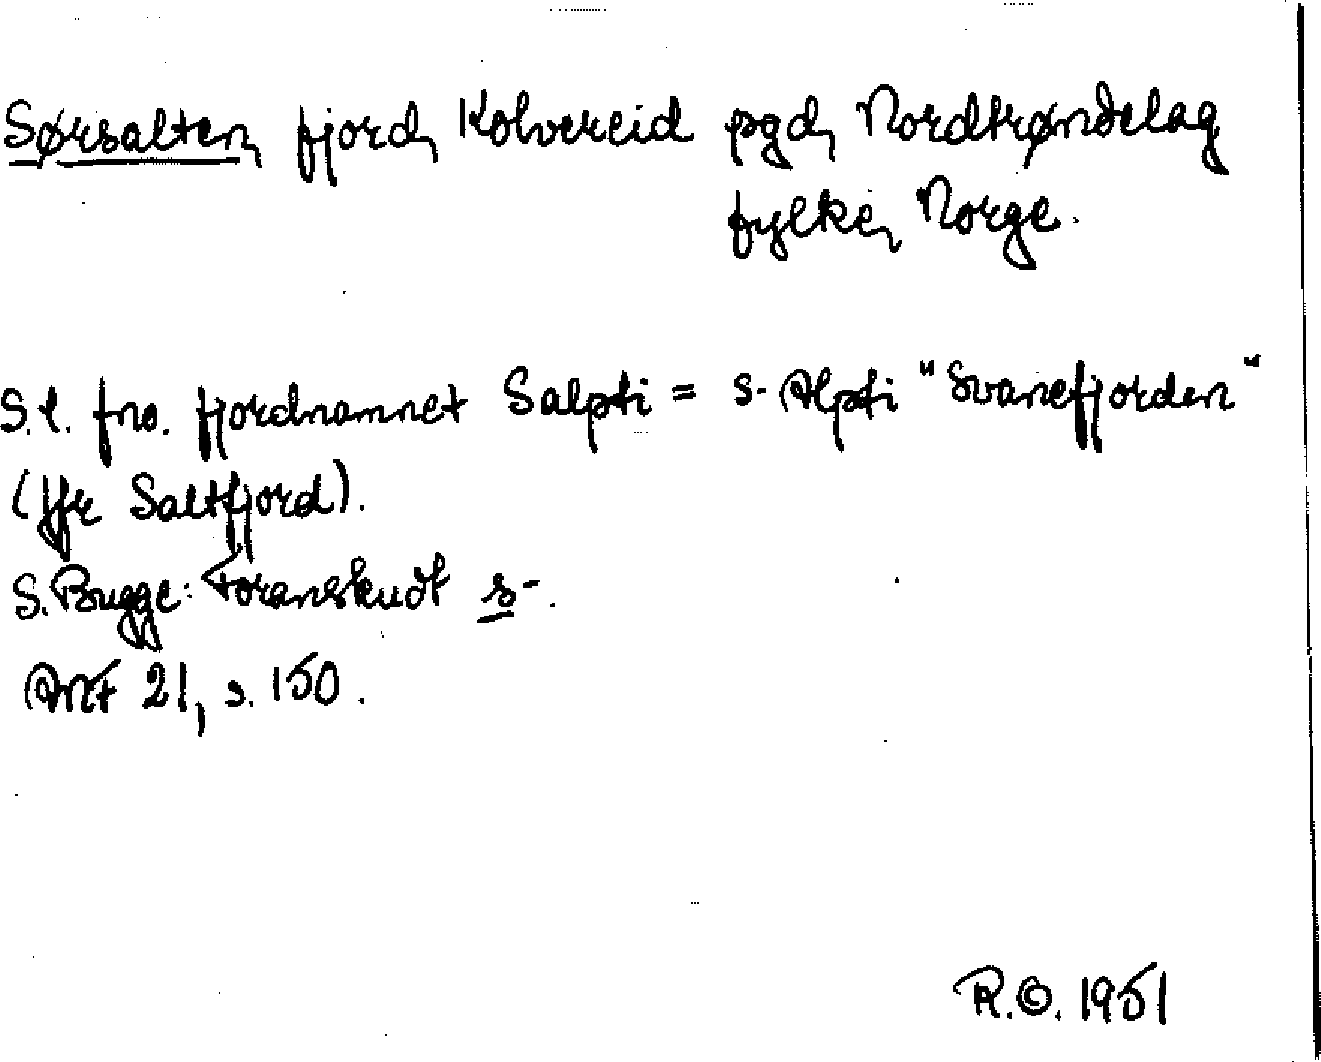 Sørsalten, fjord, Kolvereid pgd, Nordtrøndelag
fylke, Norge.
S.l. fno. fjordnamnet Salpti = s-Alpti "Svanefjorden"
(Jfr Saltfjord).
S. Bugge: Foranskudt s-.
ANF 21, s. 150.
R.O. 1951